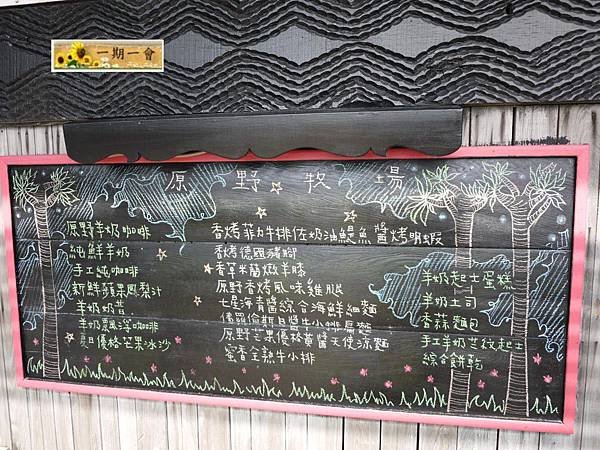 一期一會
原野牧場
原野羊奶咖啡
純鮮羊奶
手工純咖啡
新鮮蘋果鳳梨汁
羊奶奶昔
羊奶飄浮咖啡
夏日優格芒果冰沙
香烤菲力牛排佐奶油鯷魚醬烤明蝦
香烤德國豬腳
香草米蘭燉羊膝
原野香烤風味雞腿
七星海青醬綜合海鮮細麵
俄羅斯牛小排寬麵
原野芒果優格黃醬天使涼麵
蜜香全熟牛小排
羊奶起士蛋糕
羊奶土司
香蒜麵包
手工羊奶芝紋起士
綜合餅乾